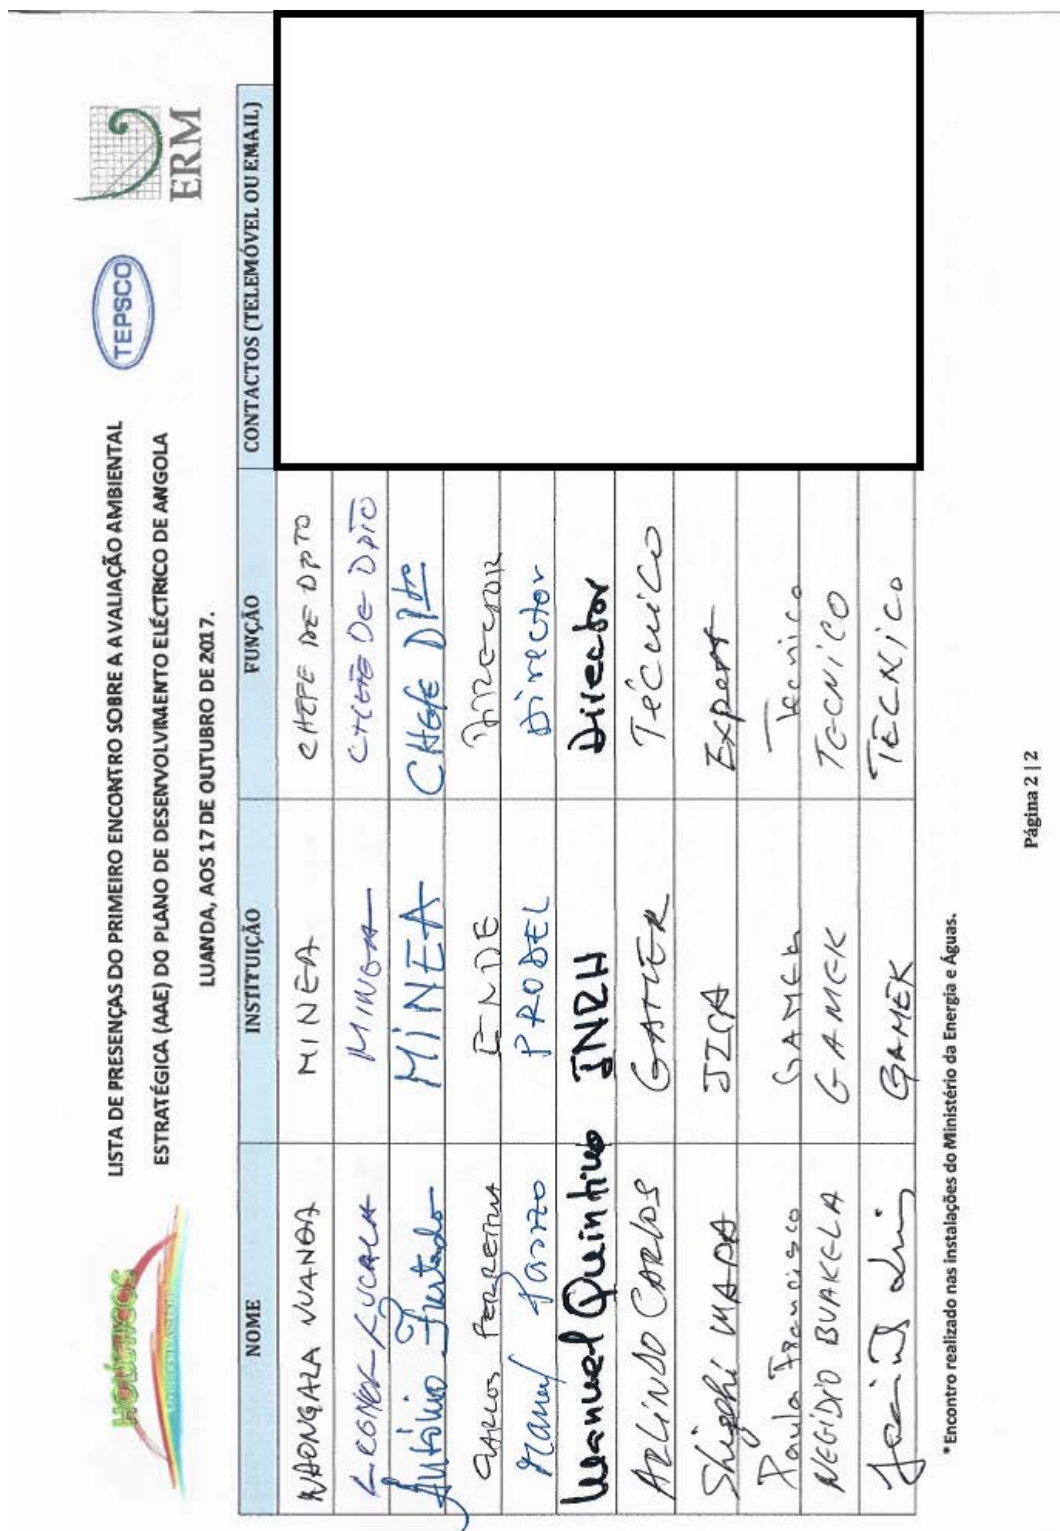 HOLÍSTICOS
TEPSCO
ERM
LISTA DE PRESENÇAS DO PRIMEIRO ENCONTRO SOBRE A AVALIAÇÃO AMBIENTAL
ESTRATÉGICA (AAE) DO PLANO DE DESENVOLVIMENTO ELÉCTRICO DE ANGOLA
LUANDA, AOS 17 DE OUTUBRO DE 2017.
NOME INSTITUIÇÃO FUNÇÃO CONTACTOS (TELEMÓVEL OU EMAIL)
MINEA CHEFE DE DPTO
CHEFE DE DPTO
António Furtado MINEA CHEFE DPto
CARLOS FERREIRA ENDE DIRECTOR
Manuel PRODEL Director
Manuel Quintino INRH Director
ARLINDO CARLOS GAMEK Técnico
WADA JICA Expert
Paulo Francisco GAMEK Tecnico
NEGIDIO BUAKELA GAMEK TECNICO
GAMEK TECNICO
*Encontro realizado nas instalações do Ministério da Energia e Águas.
Página 2 | 2